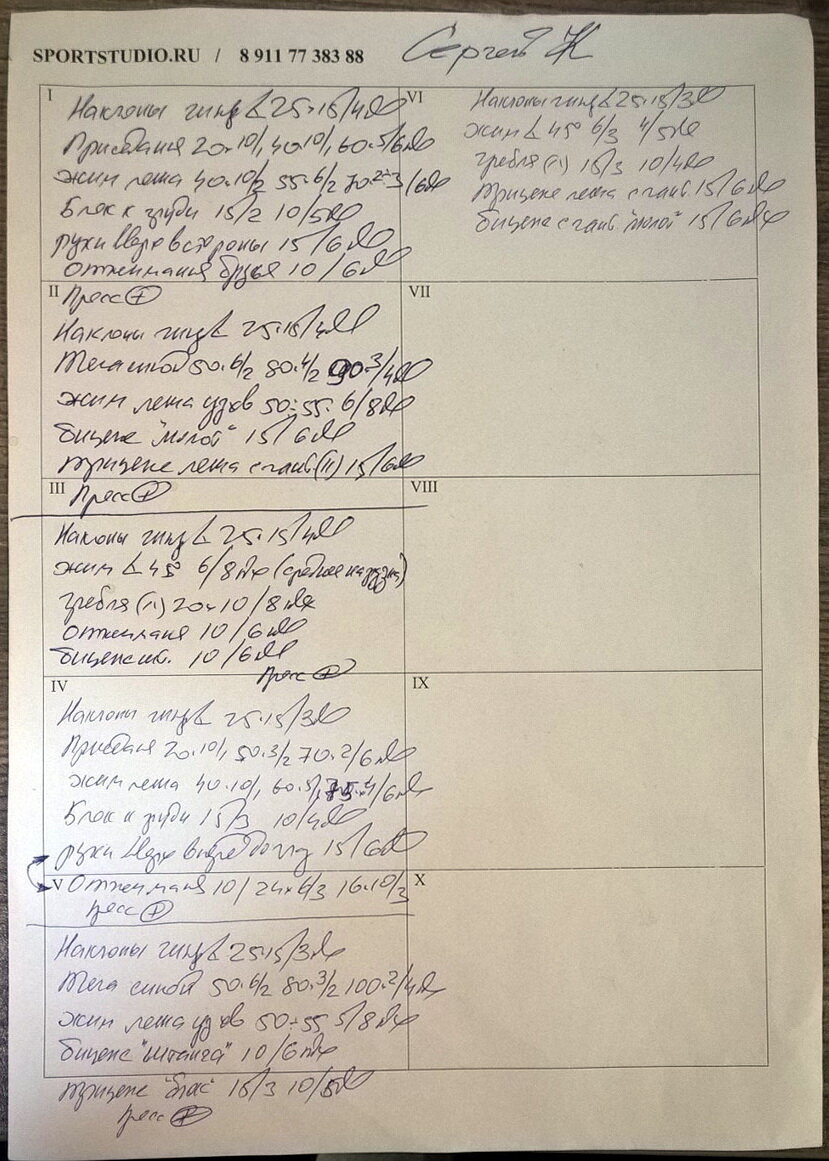 SPORTSTUDIO.RU / 8 911 77 383 88 Сергей К
I
Наклоны гипер ∠ 25×15/4
Приседания 20×10/1, 40×10/1, 60×5/6
Жим лежа 40×10/2 55×6/2 70×2÷3/6
Блок к груди 15/2 10/5
Руки вверх в стороны 15/6
Отжимания брусья 10/6
II Пресс +
Наклоны гипер ∠ 25×15/4
Тяга спиной 50×6/2 80×4/2 90×3/4
Жим лежа узков 50÷55×6/8
бицепс "молот" 15/6
Трицепс лежа с гант (II) 15/6
III Пресс +
Наклоны гипер ∠ 25×15/4
Жим ∠ 45° 6/8 (средние нагрузка)
гребля (II) 20×10/8
Отжимания 10/6
бицепс 10/6
Пресс +
IV
Наклоны гипер ∠ 25×15/3
Приседания 20×10/1, 50×3/2 70×2/6
Жим лежа 40×10/1, 60×5/1, 75×4/6
Блок к груди 15/3 10/4
Руки вверх вперед 15/6
V Отжимания 10/ 24×6/3 16×10/3
Пресс +
Наклоны гипер ∠ 25×15/3
Тяга спиной 50×6/2 80×3/2 100×2/4
Жим лежа узков 50÷55×5/8
бицепс "штанга" 10/6
Трицепс "блок" 15/3 10/5
Пресс +
VI
Наклоны гипер ∠ 25×15/3
Жим ∠ 45° 6/3 4/5
гребля (II) 15/3 10/4
Трицепс лежа с гант. 15/6
бицепс с гант "молот" 15/6
VII
VIII
IX
X